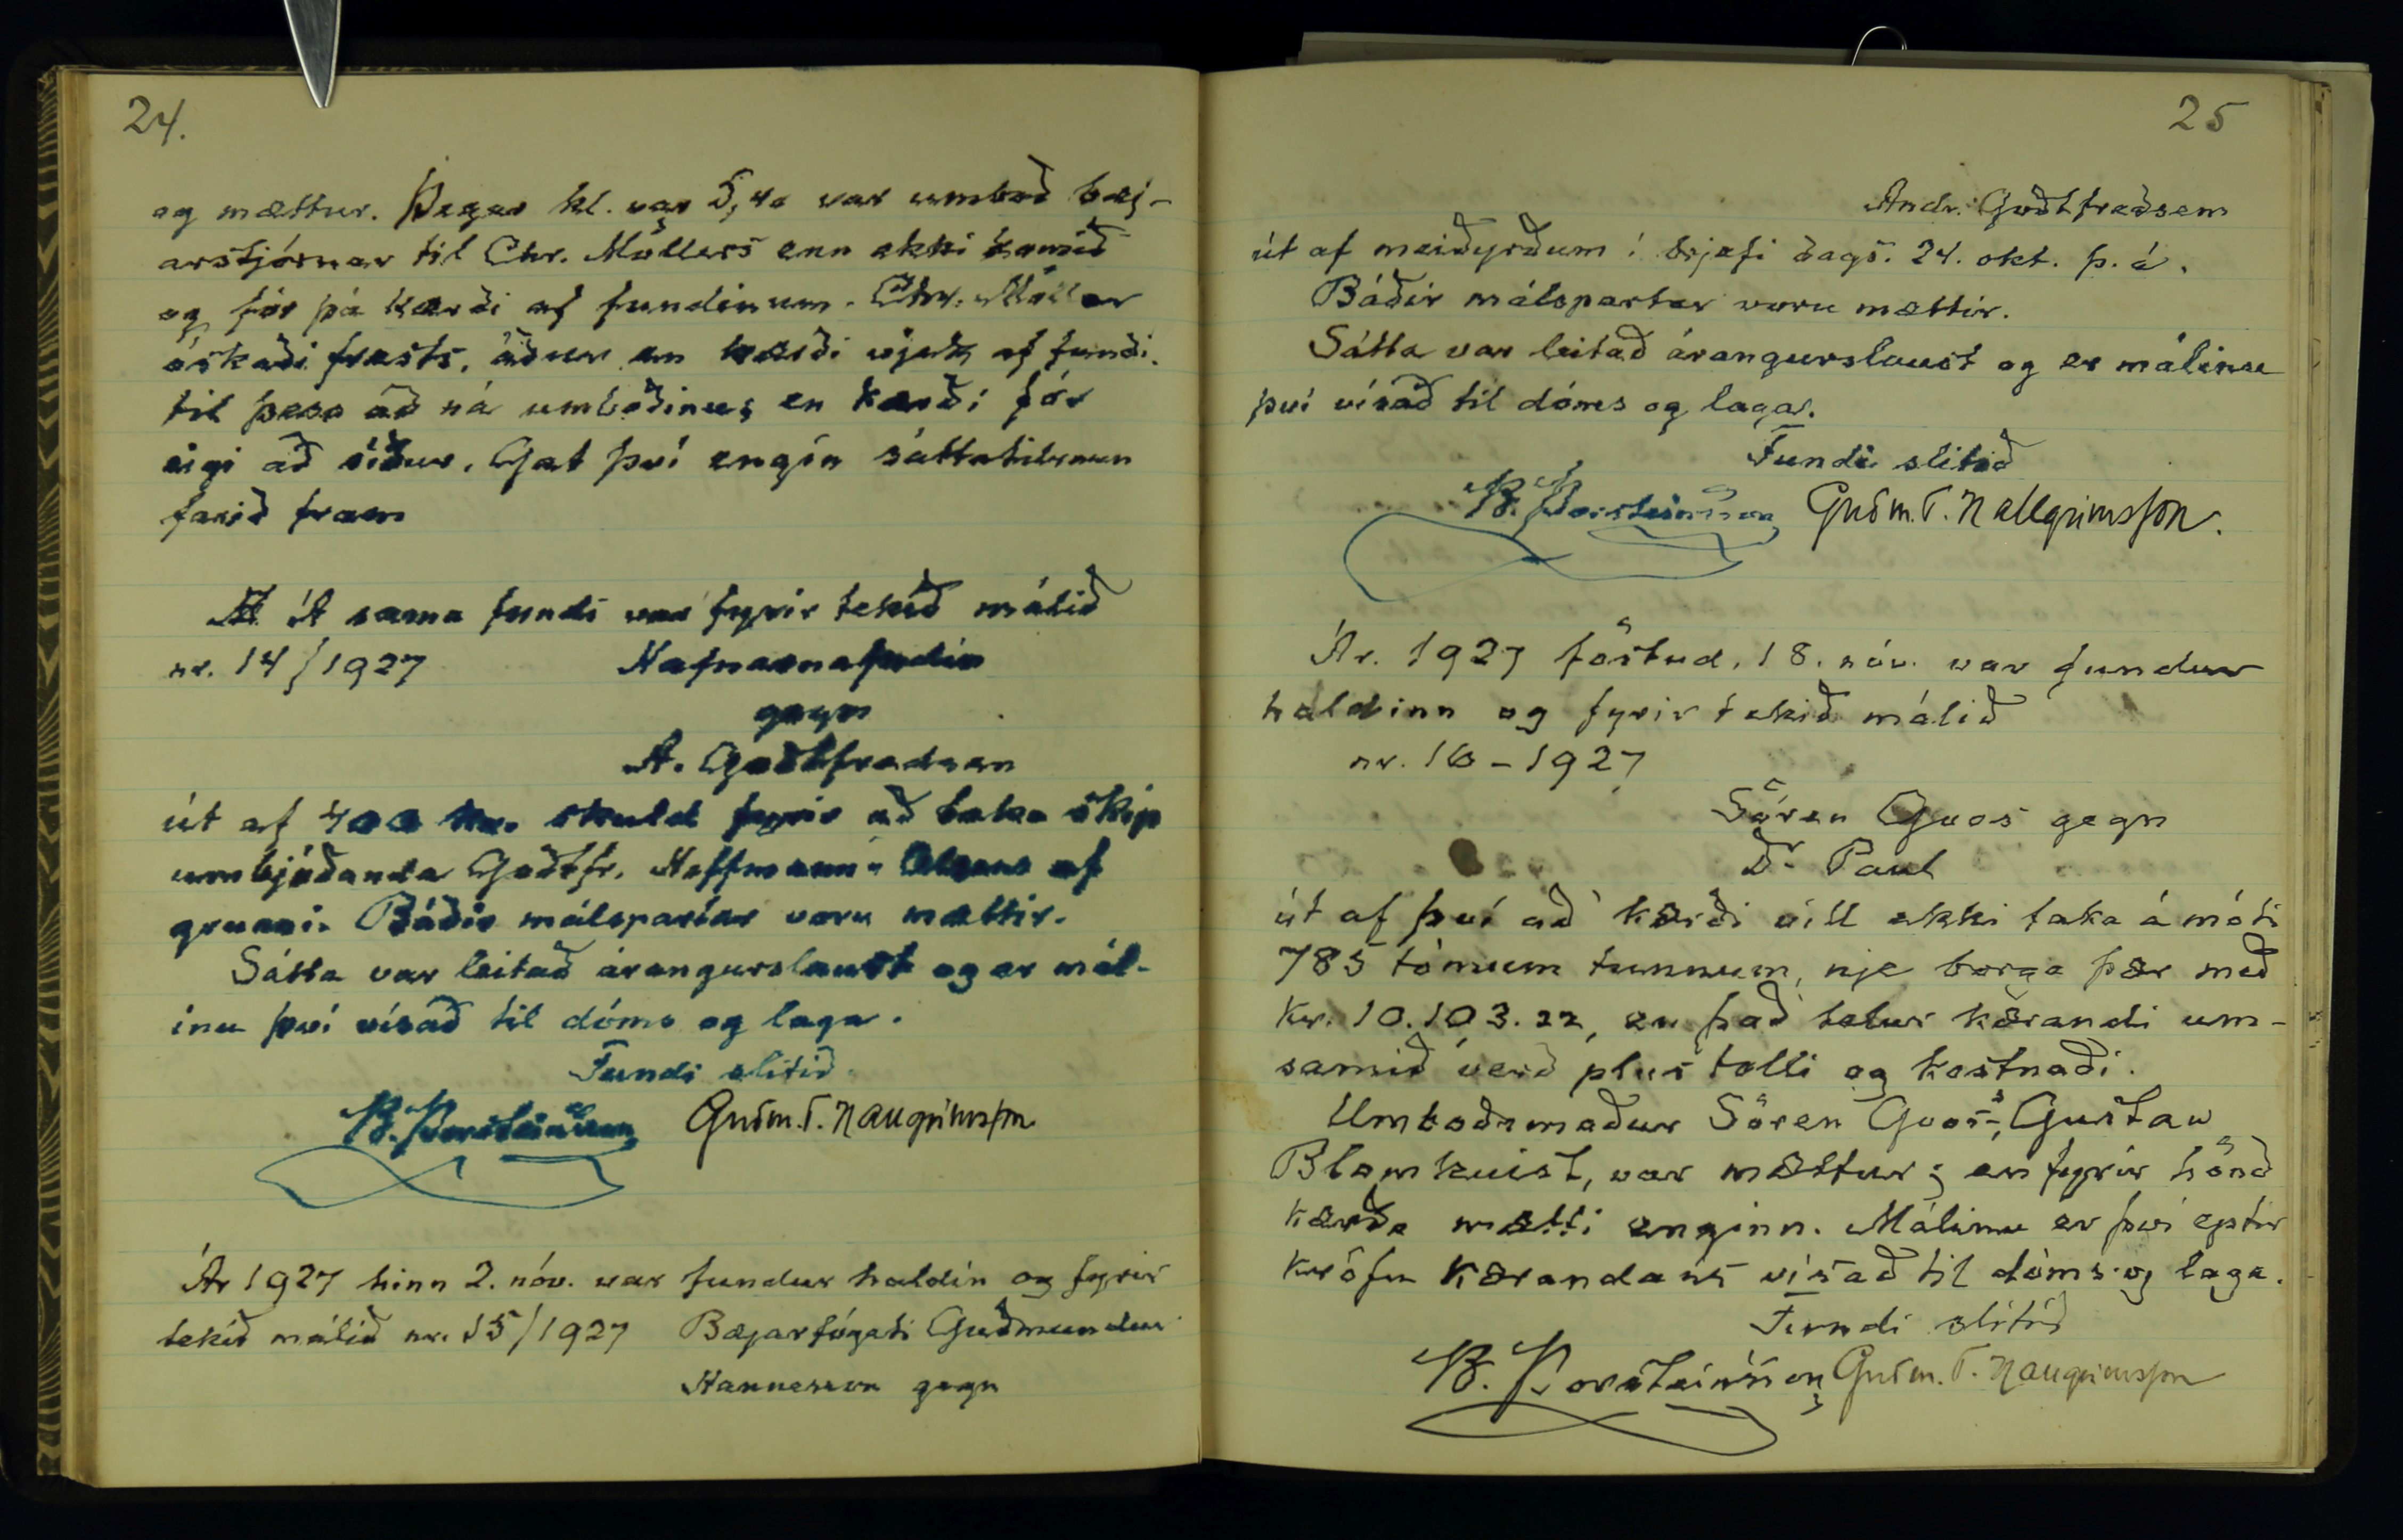 24.
og mættur. Þegar kl. var 5,40 var umboð bæj-
arstjórnar til Chr. Möllers enn ekki komið
og fór þá kærði af fundinum. Chr. Möller
óskaði frests, áður en kærði vjek af fundi.
til þess að ná umboðinu; en kærði fór
eigi að síður. Gat því engin sáttatilraun
farið fram
Á sama fundi var fyrir tekið málið
nr. 14/1927 Hafnarnefndin
gegn
A. Goðtfredsen
út af 400 kr. skuld fyrir að taka skip
umbjóðanda Goðtfr. Hoffmann-Olsens af
grunni. Báðir málspartar voru mættir.
Sátta var leitað árangurslaust og er mál-
inu því vísað til dóms og laga.
Fundi slitið.
B. Þorsteinsson Guðm. T. Hallgrímsson
Ár 1927 hinn 2. nóv. var fundur haldin og fyrir
tekið málið nr. 15/1927 Bæjarfógeti Guðmundur
Hannesson gegn
25
Andr. Goðtfredsem
út af meiðyrðum í brjefi dags. 24. okt. þ. á.
Báðir málspartar voru mættir.
Sátta var leitað árangurslaust og er málinu
því vísað til dóms og laga.
Fundi slitið
B. Þorsteinsson Guðm. T. Hallgrímsson.
Ár. 1927 föstud. 18. nóv. var fundur
haldinn og fyrir tekið málið
nr. 16-1927
Sören Goos gegn
Dr. Paul
út af því að kærði vill ekki taka á móti
785 tómum tunnum, nje borga þær með
kr. 10.103.22, en það telur kærandi um-
samið verð plus tolli og kostnaði.
Umboðsmaður Sören Goos's, Gustav
Blomkvist, var mættur; en fyrir hönd
kærða mætti enginn. Málinu er því eptir
kröfu kærandans vísað til dóms og laga.
Fundi slitið
B. Þorsteinsson Guðm. T. Hallgrímsson